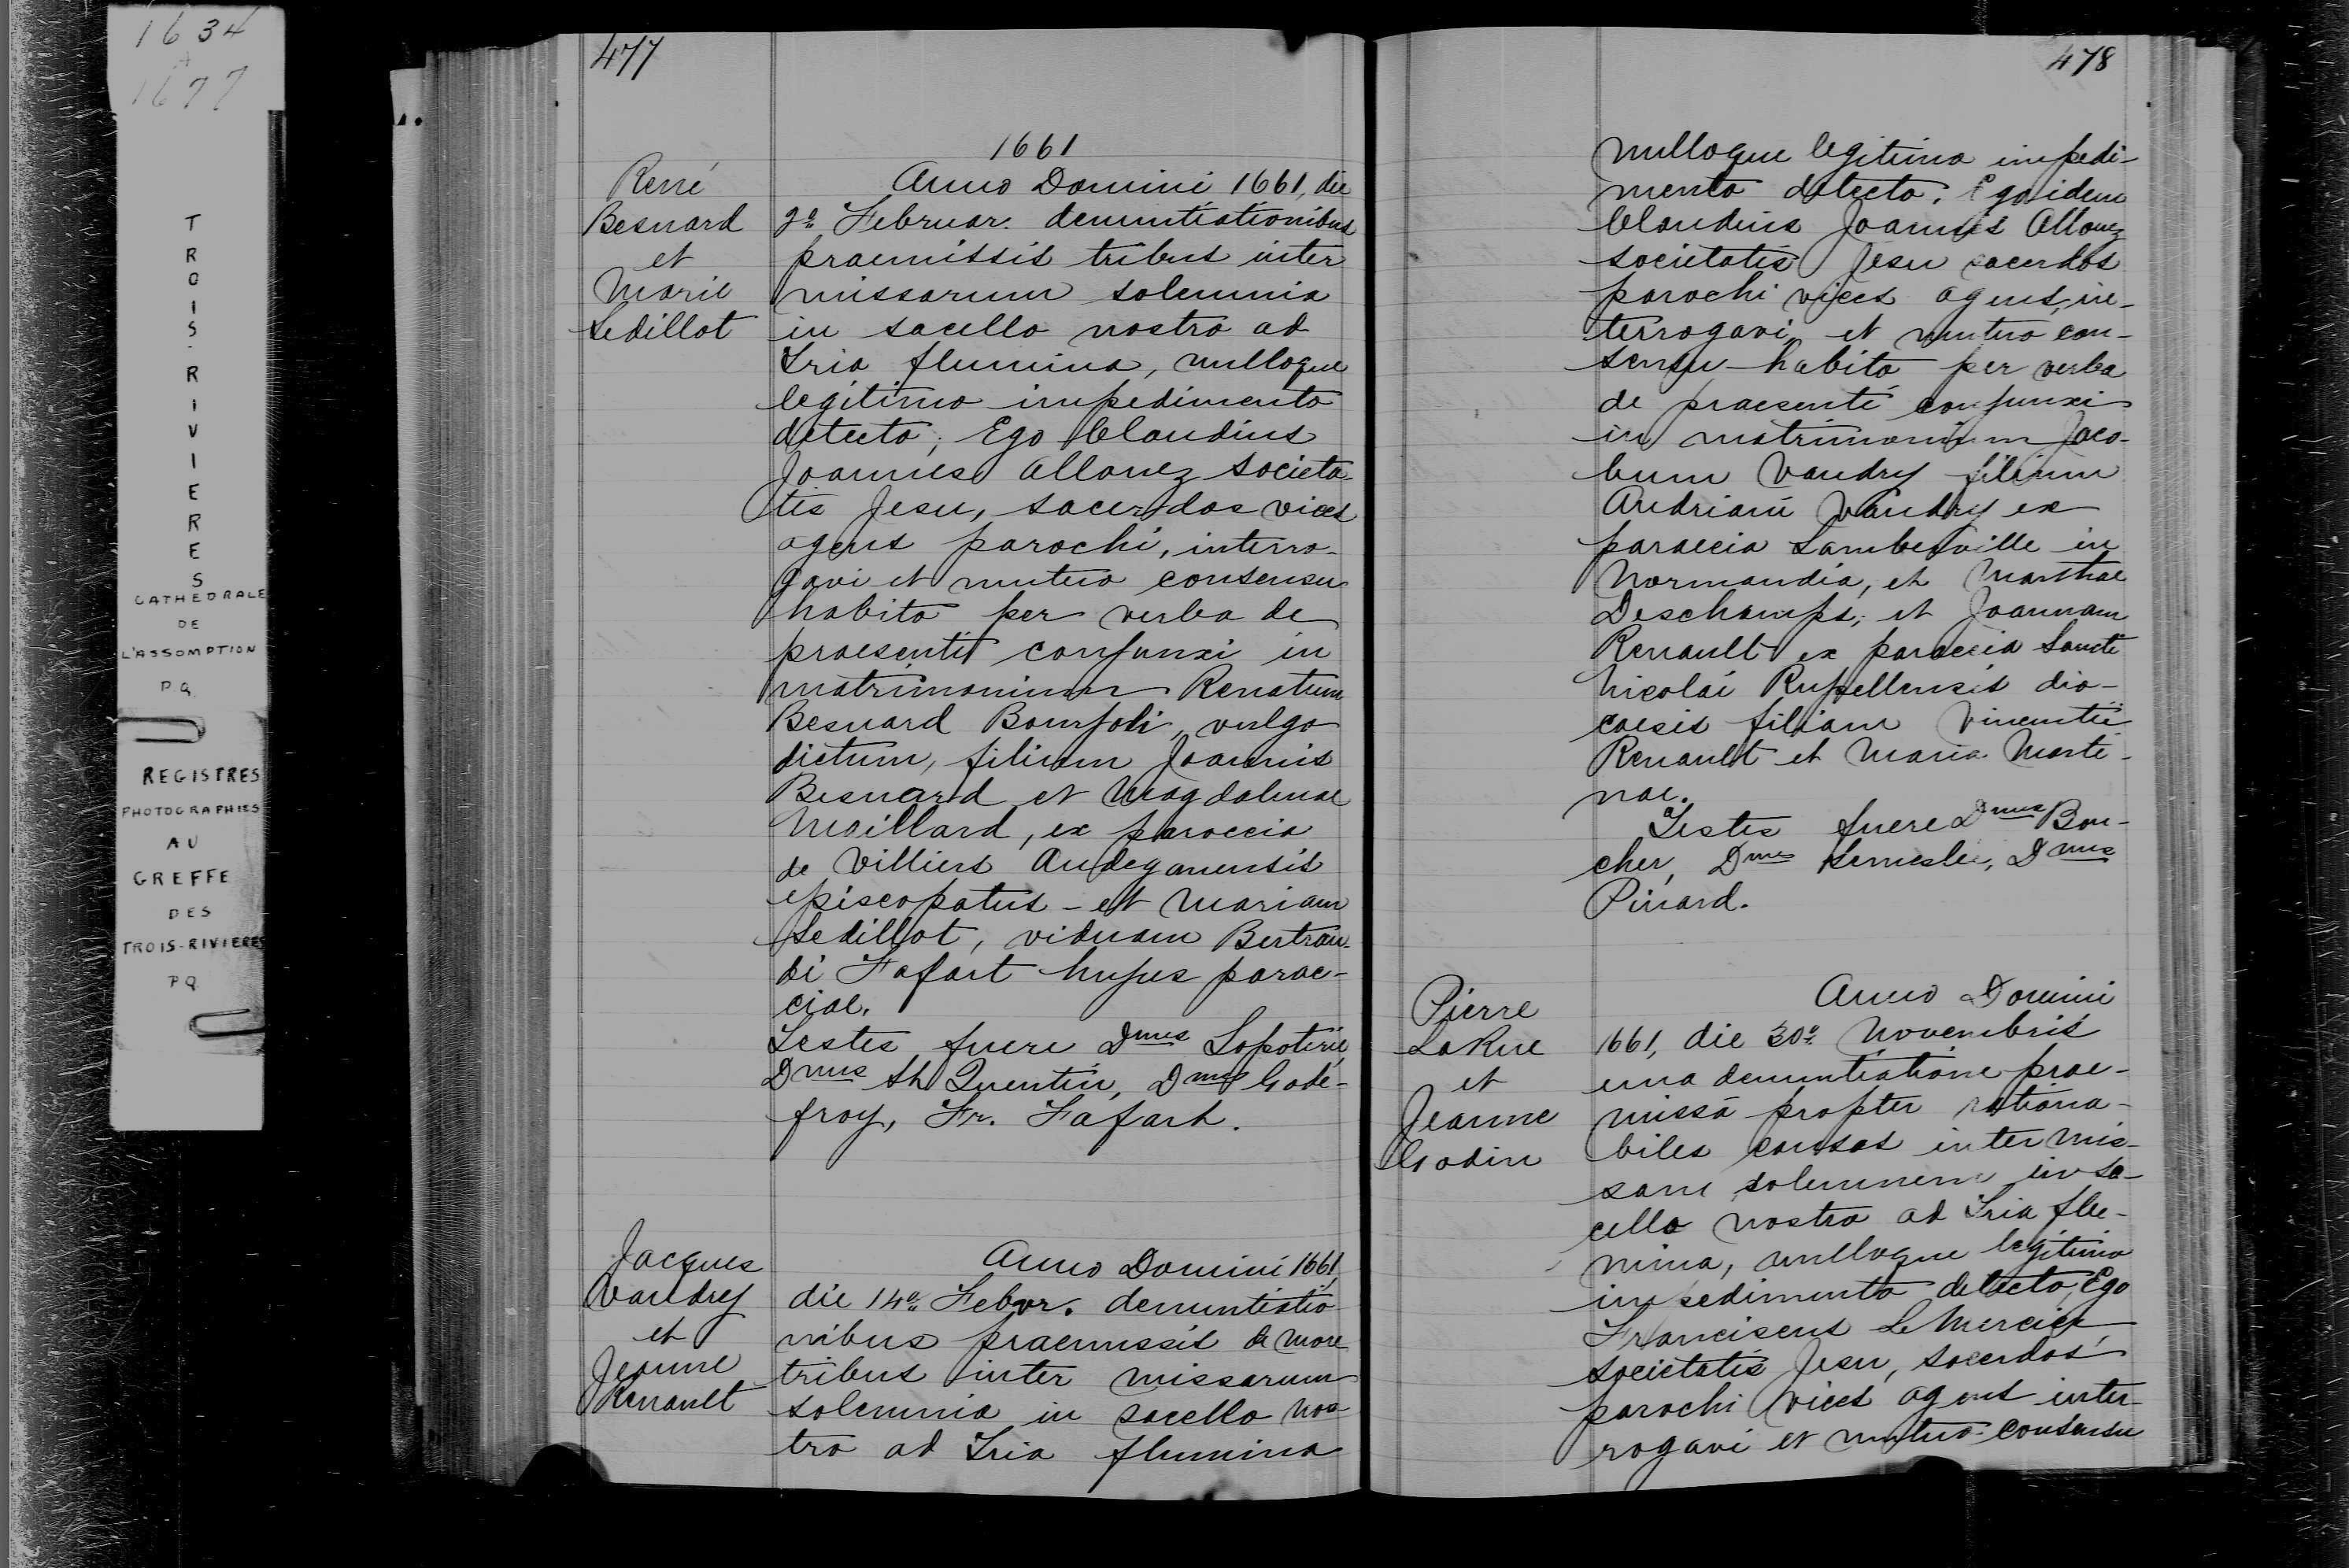 1634
A
1677
TROIS-RIVIERES
CATHÉDRALE
DE
L'ASSOMPTION
P.Q.
REGISTRES
PHOTOGRAPHIES
AU
GREFFE
DES
TROIS-RIVIERES
P.Q.
477
1661
René
Besnard
et
Marie
Sedillot
Anno Domini 1661, die
2a Februar. denuntiationibus
praemissis tribus inter
missarum solemnia
in sacello nostro ad
Tria flumina, nulloque
legitimo impedimento
detecto, Ego Claudius
Joannes Allouez societa-
tis Jesu, sacerdos vices
agens parochi, interro-
gavi et mutuo consensu
habito per verba de
praesenti conjunxi in
matrimonium Renatum
Besnard Bourjoli, vulgo
dictum, filium Joannis
Besnard et Magdalenae
Maillard, ex paroecia
de Villiers Andeganensis
episcopatus - et Mariam
Sedillot, viduam Bertran-
di Fafart hujus paroe-
ciae.
Testes fuere Dnus Lapoterie,
Dnus St Quentin, Dnus Gode-
froy, Fr. Fafart.
Jacques
Vaudry
et
Jeanne
Renault
Anno Domini 1661,
die 14a Febvr. denuntiatio
nibus praemissis de more
tribus inter missarum
solemnia in sacello nos-
tro ad Tria flumina
478
nulloque legitimo impedi-
mento detecto. Ego idem
Claudius Joannes Allouez
societatis Jesu sacerdos
parochi vices agens, in-
terrogavi et mutuo con-
sensu habito per verba
de praesenti conjunxi
in matrimonium Jaco-
bum Vaudry filium
Andriani Vaudry ex
paraecia Lamberville in
Normandia, et Marthae
Deschamps, et Joannam
Renault ex paroecia Sancti
Nicolai Rupellensis dio-
caesis filiam Vincentii
Renault et Maria Marti-
nae.
Testes fuere Dnus Bou-
cher, Dnus Lemeslée, Dnus
Pinard.
Pierre
LaRue
et
Jeanne
Godin
Anno Domini
1661, die 30a Novembris
una denuntiatione prae-
missâ propter rationa-
biles causas inter mis-
sam solemnem in sa-
cello nostro ad Tria flu-
mina, nulloque legitimo
impedimento detecto, Ego
Franciscus LeMercier
societatis Jesu, sacerdos
parochi vices agens inter-
rogavi et mutuo consensu